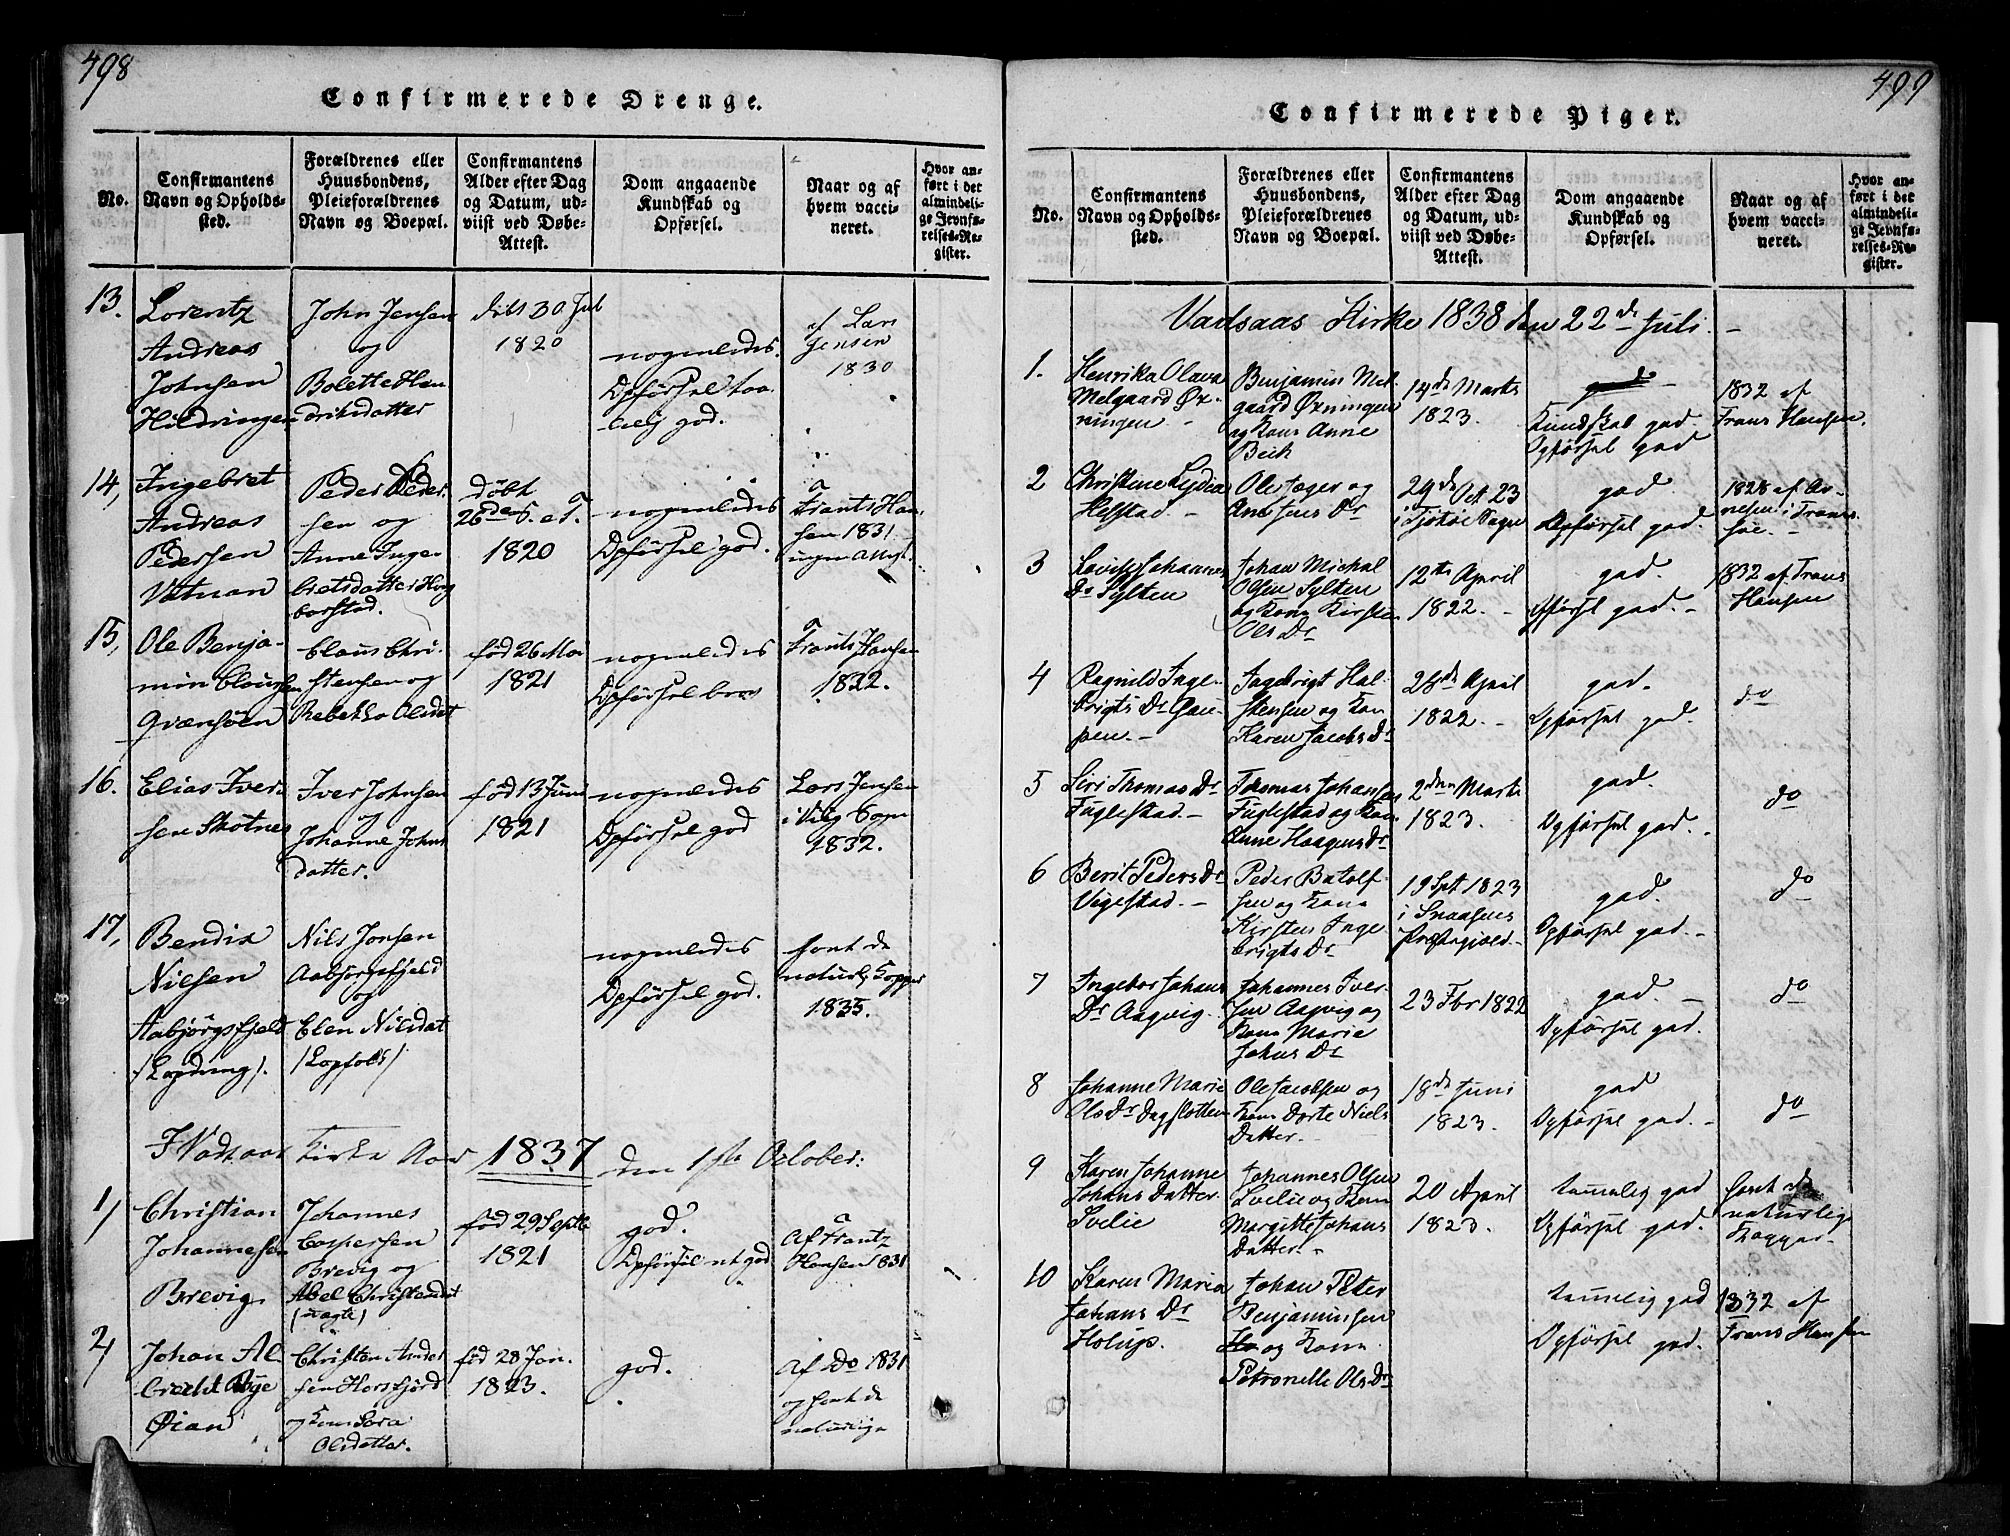 498
Confirmerede Drenge.
No.
Confirmantens
Navn og Opholds-
sted.
Forældrenes eller
Huusbondens,
Pleieforældrenes
Navn og Boepæl.
Confirmantens
Alder efter Dag
og Datum, ud-
viist ved Døbe-
Attest.
Dom angaaende
Kundskab og
Opførsel.
Naar og af
hvem vacci-
neret.
Hvor an-
ført i det
almindeli-
ge Jevnfø-
relses-Re-
gister.
13.
Lorentz
Andreas
Johnsen
Hildringen
John Jensen
og
Bolette Hen
driksdatter
30 Jul
1820
nogenledes.
Opförsel taa
lelig god.
af Lars
Jensen
1830
14,
Ingebret
Andreas
Pedersen
Vatnan
Peder Peder
sen og
Anne Inge
bretsdatter Hog
barstad.
Döbt
26de S. e. T.
1820
nogenledes
Opförsel god.
Frants Han
sen 1831
15,
Ole Benja-
min Clausen
Qvænsöen
Claus Chri-
stensen og
Rebekka Olsdat
fød 26 Mai
1821
nogenledes
Opförsel bra
Frants Hansen
1832.
16.
Elias Iver
sen Skotnes
Iver Johnsen
og
Johanne Johns
datter.
fød 13 Juni
1821
nogenledes
Opförsel god
Lars Jensen
i Vig Sogn
1832.
17,
Bendix
Nilsen
Aabjörgsfjeld
Nils Jonsen
Aabjörgsfjeld
og
Elen Nilsdat
nogenledes
Opförsel god.
havt de
naturl. Kopper
1835.
I Vadsaas Kirke Aar 1837 den 1ste October:
1/
Christian
Johannesen
Brevig
Johannes
Caspersen
Brevig og
Abel Christensdat
fød 29 Septb
1821
god.
Opförsel god
Af Frantz
Hansen 1831
2/
Johan Al
brecht Bye
Øian
Christen Ander
sen Horsfjord
og Kone Sara
Olsdatter.
fød 28 Jan.
1823.
god.
Af Do 1831
og havt de
naturlige
499
Confirmerede Piger.
No.
Confirmantens
Navn og Opholds-
sted.
Forældrenes eller
Huusbondens,
Pleieforældrenes
Navn og Boepæl.
Confirmantens
Alder efter Dag
og Datum, ud-
viist ved Døbe-
Attest.
Dom angaaende
Kundskab og
Opførsel.
Naar og af
hvem vacci-
neret.
Hvor an-
ført i det
almindeli-
ge Jevnfø-
relses-Re-
gister.
Vadsaas Kirke 1838 den 22de Juli.
1.
Henrika Olava
Melgaard Øx-
ningen
Benjamin Mel
gaard Øxningen
og Kone Anne
Bech
14de Marts
1823
god
Kundskab god.
Opförsel god
1832 af
Frans Hansen.
2
Christine Lydia
Helstad.
Ole Jæger og
Ane Jens Dr
29de Oct. 23
i Tjötöe Sogn
god.
Opförsel god.
1828 af Ar-
nesen i Trams
söe.
3
Lovise Johannes
Dr Sylten
Johan Michal
Olsen Sylten
og Kone Kirsten
Ols Dr
12te April
1822.
god.
Opförsel god.
1832 af Frans
Hansen
4
Ragnild Inge-
brigts Dr Gau-
pen.
Ingebrigt Hal
stensen og Kone
Karen Jacobs Dr
28de April
1822.
god.
Opförsel god.
do
5
Siri Thomas Dr
Fuglestad.
Thomas Johansen
Fuglestad og Kone
Anne Haagens Dr
2den Marts
1823.
god.
Opförsel god.
do
6
Berit Peders Dr
Vegestad.
Peder Batolf
sen og Kone
Kirsten Inge
brigts Dr
19 Spt. 1823
i Snaasens
Præstegjeld.
god.
Opförsel god.
do
7
Ingebor Johans
Dr Aagvig.
Johannes Iver
sen Aagvig og
Kone Marie
Johns Dr
23 Fbr 1822
god.
Opförsel god.
do
8
Johanne Marie
Ols Dr Dagslotten
Ole Jacobsen og
Kone Dorte Niels
Datter.
18de Juni
1823.
god
Opförsel god.
do
9
Karen Johanne
Johans Datter
Svelie
Johannes Olsen
Svelie og Kone
Margitte Johans
Datter.
20 April
1823.
temmelig god
Opförsel god.
havt de
naturlige
Kopper.
10
Karen Maria
Johans Dr
Holup.
Johan Peter
Benjaminsen
og Kone
Petronelle Ols Dr
temmelig god
Opförsel god.
1832 af
Frans Hansen